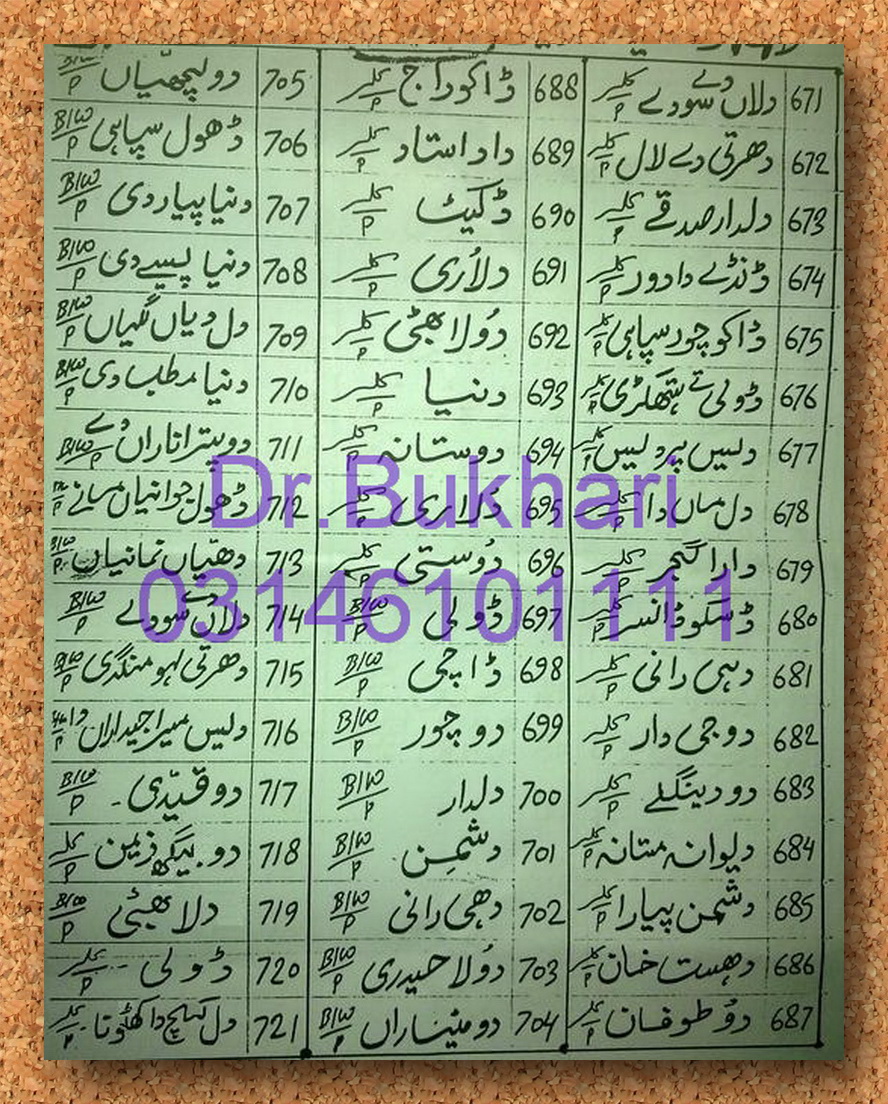 671 دلاں دے سودے کلر/P
672 دھرتی دے لال کلر/P
673 دلدار صدقے کلر/P
674 ڈنڈے دا دور کلر/P
675 ڈاکو چور سپاہی کلر/P
676 ڈولی تے ہتھکڑی کلر/P
677 دلیس پردلیس کلر/P
678 دل ماں دا کلر/P
679 دارا گجر کلر/P
680 ڈسکو ڈانسر کلر/P
681 دہی رانی کلر/P
682 دوجی دار کلر/P
683 دو دینگلے کلر/P
684 دیوانہ مستانہ کلر/P
685 دشمن پیارا کلر/P
686 دہست خان کلر/P
687 دوُ طوفان کلر/P
688 ڈاکو راج کلر/P
689 داد استاد کلر/P
690 ڈکیٹ کلر/P
691 دلاُری کلر/P
692 دُولا بھٹی کلر/P
693 دنیا کلر/P
694 دوستانہ کلر/P
695 دُلاری کلر/P
696 دُوستی کلر/P
697 ڈولی B/W/P
698 ڈاچی B/W/P
699 دو چور B/W/P
700 دلدار B/W/P
701 دشمن B/W/P
702 دھی رانی B/W/P
703 دُولا حیدری B/W/P
704 دو مٹیاراں B/W/P
705 دو لچھیاں B/W/P
706 ڈھول سپاہی B/W/P
707 دنیا پیار دی B/W/P
708 دنیا پیسے دی B/W/P
709 دل دیاں لگیاں B/W/P
710 دنیا مطلب دی B/W/P
711 دو پتر اناراں دے B/W/P
712 ڈھول جوانیاں مانے P
713 دھیاں نمانیاں B/W/P
714 دلاں دے سودے B/W/P
715 دھرتی لہو منگدی B/W/P
716 دلیس میرا جیداراں دا P
717 دو قیدّی B/W/P
718 دو بیگھ زمین کلر/P
719 دلا بھٹی B/W/P
720 ڈولی کلر/P
721 دل کچ دا کھڈونا کلر/P
Dr.Bukhari
03146101111